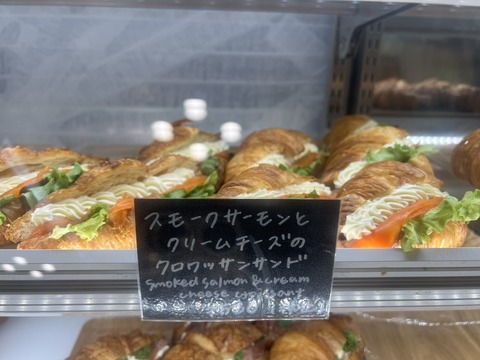 スモークサーモンと
クリームチーズの
クロワッサンサンド
smoked salmon & cream
cheese croissant